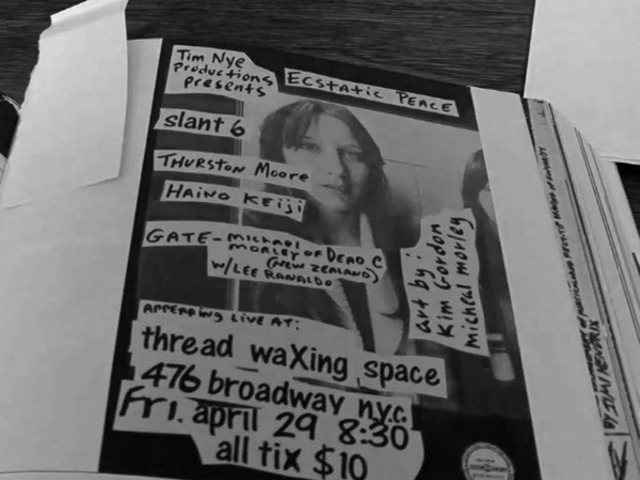 Tim Nye
Productions
presents
Ecstatic Peace
slant 6
Thurston Moore
Haino Keiji
GATE - Michael
Morley of Dead C
(New Zealand)
w/ Lee Ranaldo
art by:
Kim Gordon
micheal morley
Appearing live at:
thread waXing space
476 broadway n.y.c.
Fri. april 29 8:30
all tix $10
by JIMI HENDRIX